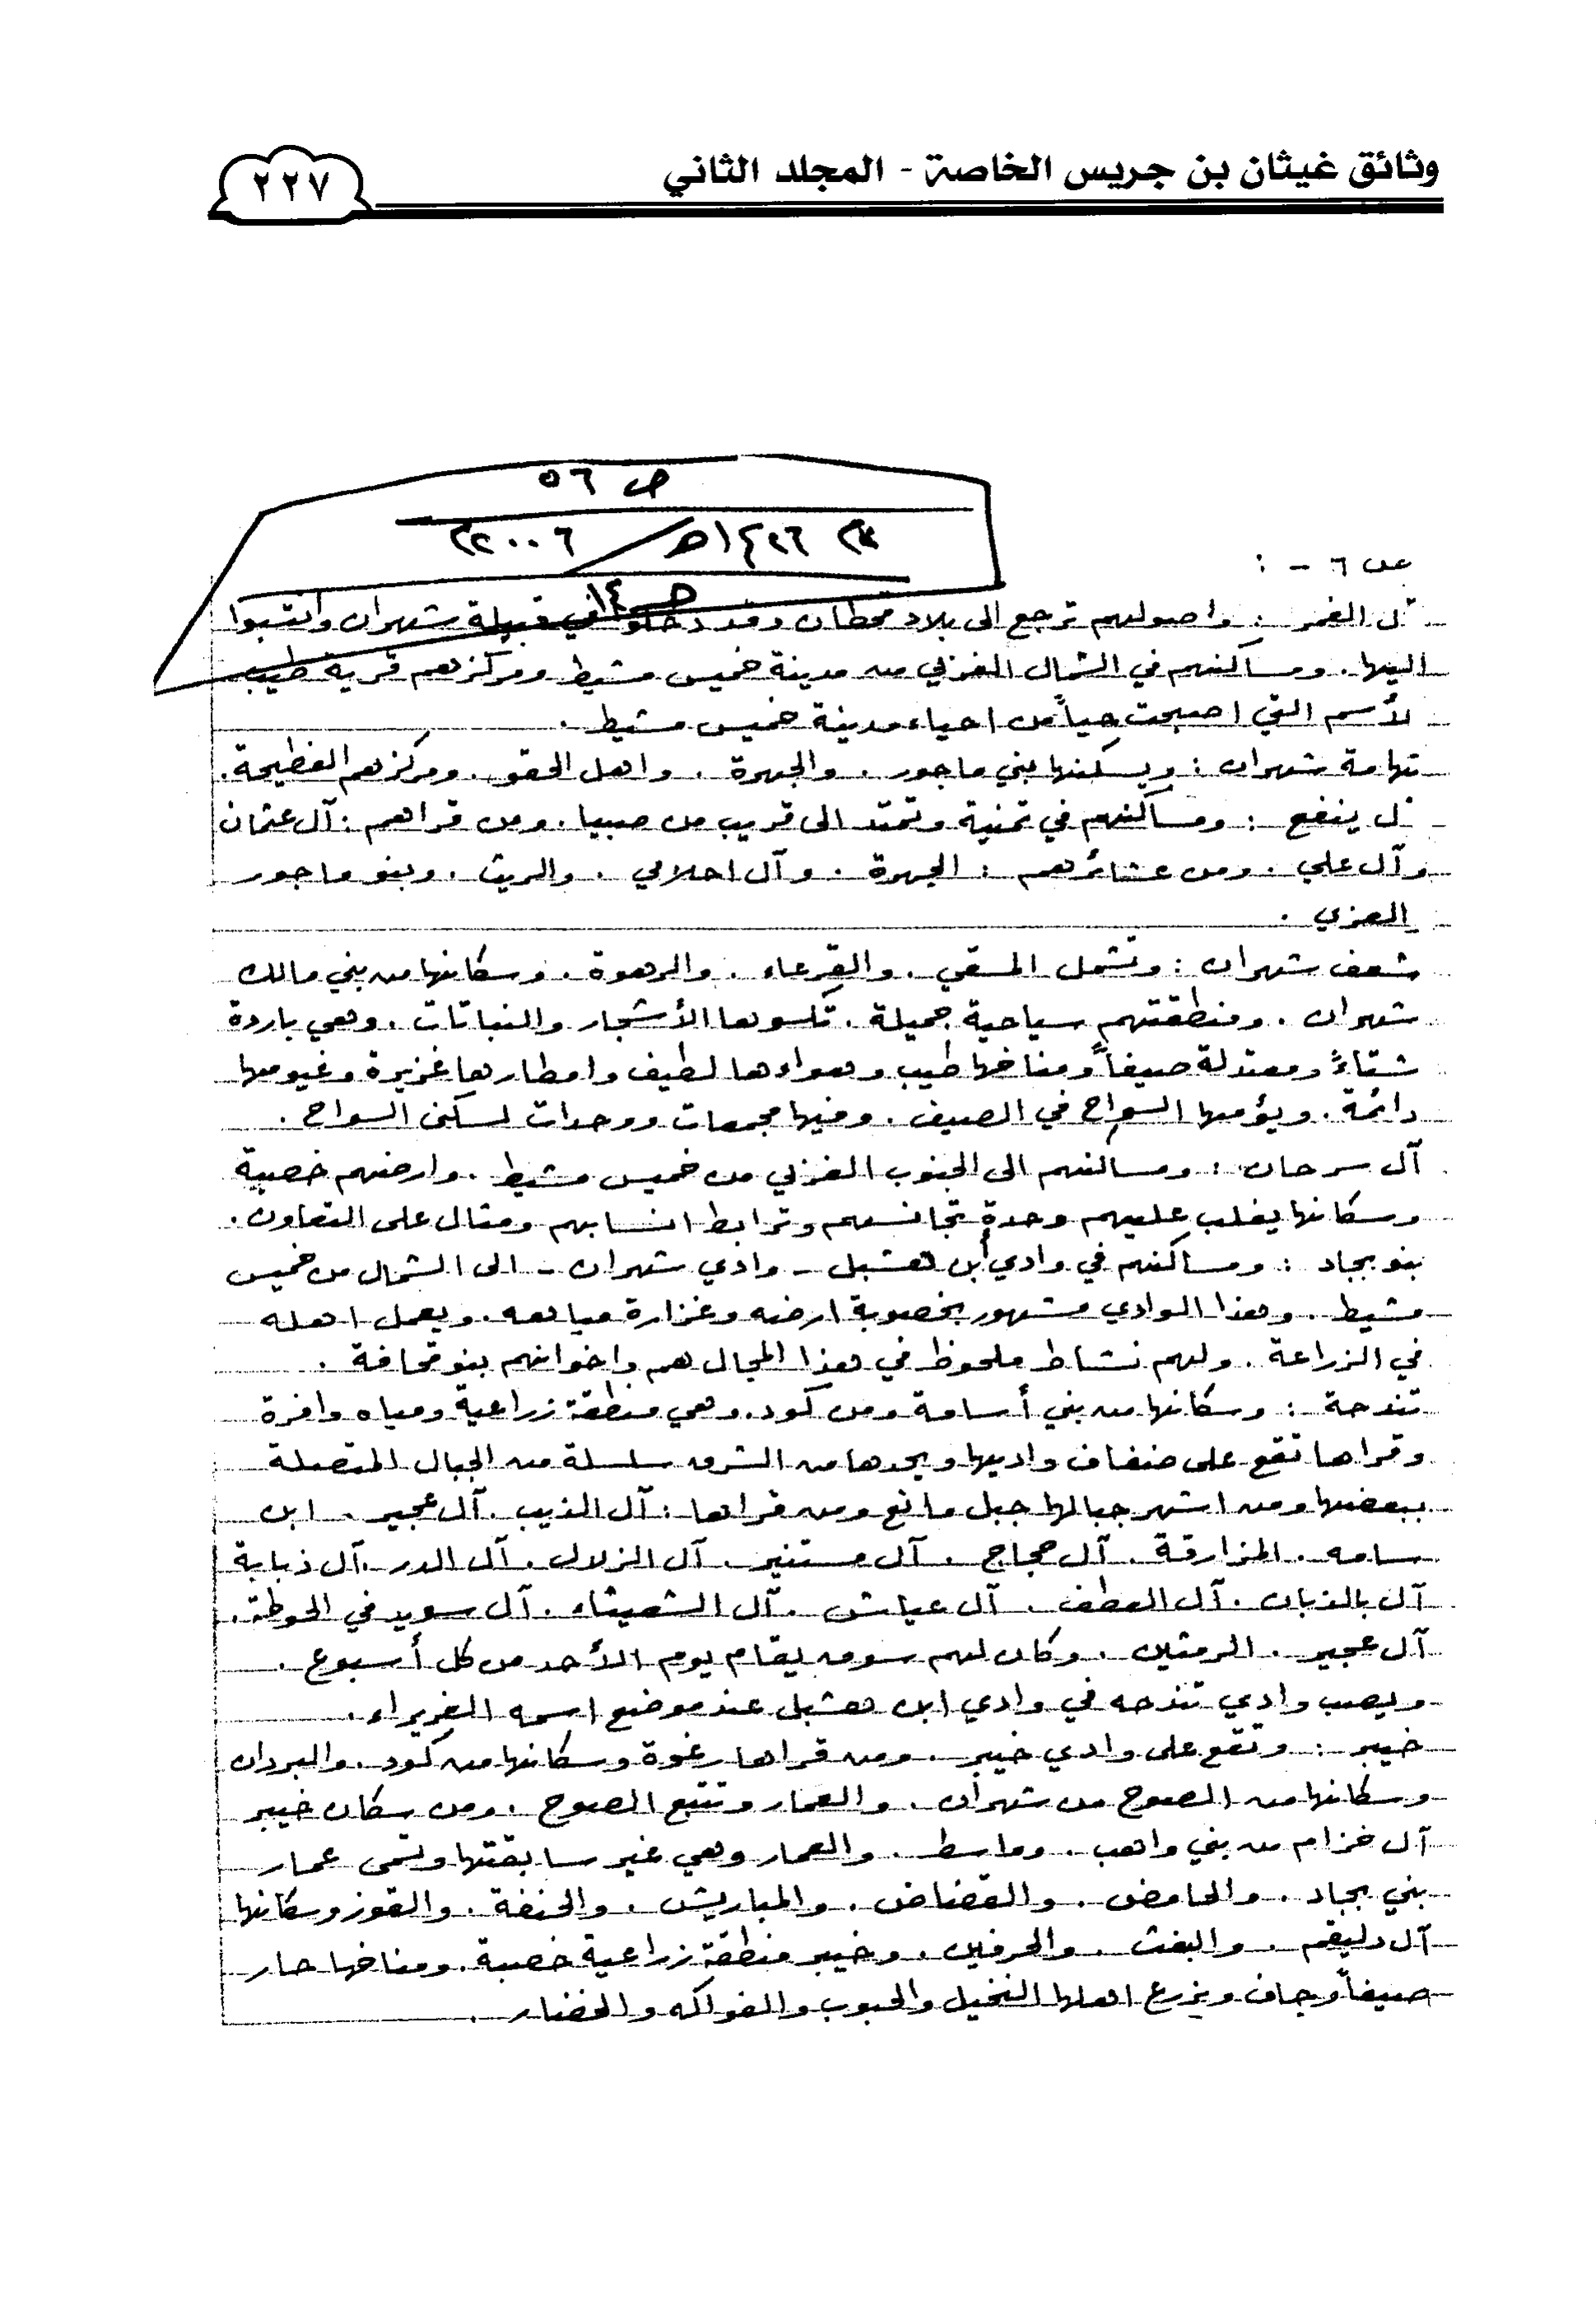 وثائق غيثان بن جريس الخاصة - المجلد الثاني
٢٢٧
ص ٥٦
١٤٢٦هـ / ٢٠٠٦م
ص ١٤
ص ٦ - :
ل الغمر : واصولهم ترجع الى بلاد قحطان وقد دخلوا في قبيلة شهران وانتسبوا
اليها . ومساكنهم في الشمال الغربي من مدينة خميس مشيط ومركزهم قرية طيب
لأسم التي اصبحت حياً من احياء مدينة خميس مشيط .
تهامة شهران : ويسكنها بني ماجور . والجهرة . واهل الحقو . ومركزهم الفطيحة .
ل ينفع : ومساكنهم في تمنية وتمتد الى قريب من صبيا . ومن قراهم : آل عثمان
وآل علي . ومن عشائرهم : الجهرة . وآل احلامي . والريث . وبنو ماجور
العزي .
شعف شهران : وتشمل المسقي . والقرعاء . والرهوة . وسكانها من بني مالك
شهران . ومنطقتهم سياحية جميلة . تكسوها الأشجار والنباتات . وهي باردة
شتاءً ومعتدلة صيفاً ومناخها طيب وهواءها لطيف وامطارها غزيرة وغيومها
دائمة . ويؤمها السواح في الصيف . وفيها مجمعات ووحدات لسكنى السواح .
آل سرحان : ومساكنهم الى الجنوب الغربي من خميس مشيط . وارضهم خصبة
وسكانها يغلب عليهم وحدة تجانسهم وترابط انسابهم ومثال على التعاون .
بنو بجاد : ومساكنهم في وادي أبن هشبل - وادي شهران - الى الشمال من خميس
مشيط . وهذا الوادي مشهور بخصوبة ارضه وغزارة مياهه . ويعمل اهله
في الزراعة . ولهم نشاط ملحوظ في هذا المجال هم واخوانهم بنو قحافة .
تندحة : وسكانها من بني أسامة ومن كود . وهي منطقة زراعية ومياه وافرة
وقراها تقع على ضفاف واديها ويحدها من الشرق سلسلة من الجبال المتصلة
ببعضها ومن اشهر جبالها جبل مانع ومن قراها : آل الذيب . آل عجير . ابن
سامه . المزارقة . آل حجاج . آل مستنير . آل الزلال . آل الدر . آل ذبابة
آل بالذبان . آل العطف . آل عياش . آل الشعيثاء . آل سويد في الحوطة .
آل عجير . الرمثين . وكان لهم سوق يقام يوم الأحد من كل أسبوع .
ويصب وادي تندحه في وادي ابن هشبل عند موضع اسمه الغريراء .
خيبر : وتقع على وادي خيبر . ومن قراها رغوة وسكانها من كود . والبردان
وسكانها من الصبوح من شهران . والعمار وتتبع الصبوح . ومن سكان خيبر
آل خزام من بني واهب . وماسط . والعمار وهي غير سابقتها وتسمى عمار
بني بجاد . والحامض . والقضاض . والمباريش . والخنفة . والقوز وسكانها
آل دليقم . والبغث . والحرفين . وخيبر منطقة زراعية خصبة . ومناخها حار
صيفاً وجاف ويزرع اهلها النخيل والحبوب والفواكه والخضار .